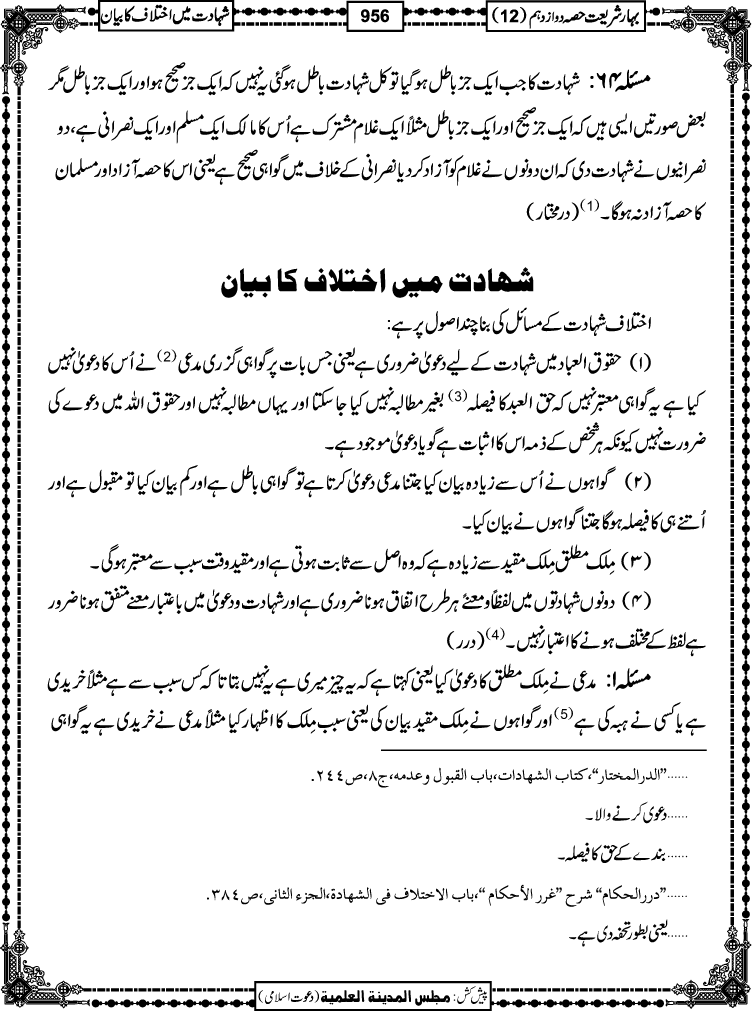 بہار شریعت حصہ دوازدہم (12)
956
شہادت میں اختلاف کا بیان
مسئلہ ۶۴: شہادت کا جب ایک جز باطل ہوگیا تو کل شہادت باطل ہوگئی یہ نہیں کہ ایک جز صحیح ہو اور ایک جز باطل مگر
بعض صورتیں ایسی ہیں کہ ایک جز صحیح اور ایک جز باطل مثلاً ایک غلام مشترک ہے اُس کا مالک ایک مسلم اور ایک نصرانی ہے، دو
نصرانیوں نے شہادت دی کہ ان دونوں نے غلام کو آزاد کردیا نصرانی کے خلاف میں گواہی صحیح ہے یعنی اس کا حصہ آزاد اور مسلمان
کا حصہ آزاد نہ ہوگا۔(1) (درمختار)
شہادت میں اختلاف کا بیان
اختلاف شہادت کے مسائل کی بنا چند اصول پر ہے:
(۱) حقوق العباد میں شہادت کے لیے دعویٰ ضروری ہے یعنی جس بات پر گواہی گزری مدعی(2) نے اُس کا دعویٰ نہیں
کیا ہے یہ گواہی معتبر نہیں کہ حق العبد کا فیصلہ(3) بغیر مطالبہ نہیں کیا جا سکتا اور یہاں مطالبہ نہیں اور حقوق اللہ میں دعوے کی
ضرورت نہیں کیونکہ ہر شخص کے ذمہ اس کا اثبات ہے گویا دعویٰ موجود ہے۔
(۲) گواہوں نے اُس سے زیادہ بیان کیا جتنا مدعی دعویٰ کرتا ہے تو گواہی باطل ہے اور کم بیان کیا تو مقبول ہے اور
اُتنے ہی کا فیصلہ ہوگا جتنا گواہوں نے بیان کیا۔
(۳) مِلک مطلق مِلک مقید سے زیادہ ہے کہ وہ اصل سے ثابت ہوتی ہے اور مقید وقت سبب سے معتبر ہوگی۔
(۴) دونوں شہادتوں میں لفظاً و معنےً ہر طرح اتفاق ہونا ضروری ہے اور شہادت و دعویٰ میں باعتبار معنے متفق ہونا ضرور
ہے لفظ کے مختلف ہونے کا اعتبار نہیں۔(4) (درر)
مسئلہ ۱: مدعی نے مِلک مطلق کا دعویٰ کیا یعنی کہتا ہے کہ یہ چیز میری ہے یہ نہیں بتاتا کہ کس سبب سے ہے مثلاً خریدی
ہے یا کسی نے ہبہ کی ہے(5) اور گواہوں نے مِلک مقید بیان کی یعنی سبب مِلک کا اظہار کیا مثلاً مدعی نے خریدی ہے یہ گواہی
......"الدرالمختار"، کتاب الشهادات، باب القبول وعدمه، ج۸، ص۲٤٤.
......دعوی کرنے والا۔
......بندے کے حق کا فیصلہ۔
......"دررالحکام" شرح "غرر الأحکام"، باب الاختلاف فی الشهادة، الجزء الثانی، ص۳۸٤.
......یعنی بطور تحفہ دی ہے۔
پیش کش: مجلس المدينة العلمية (دعوت اسلامی)